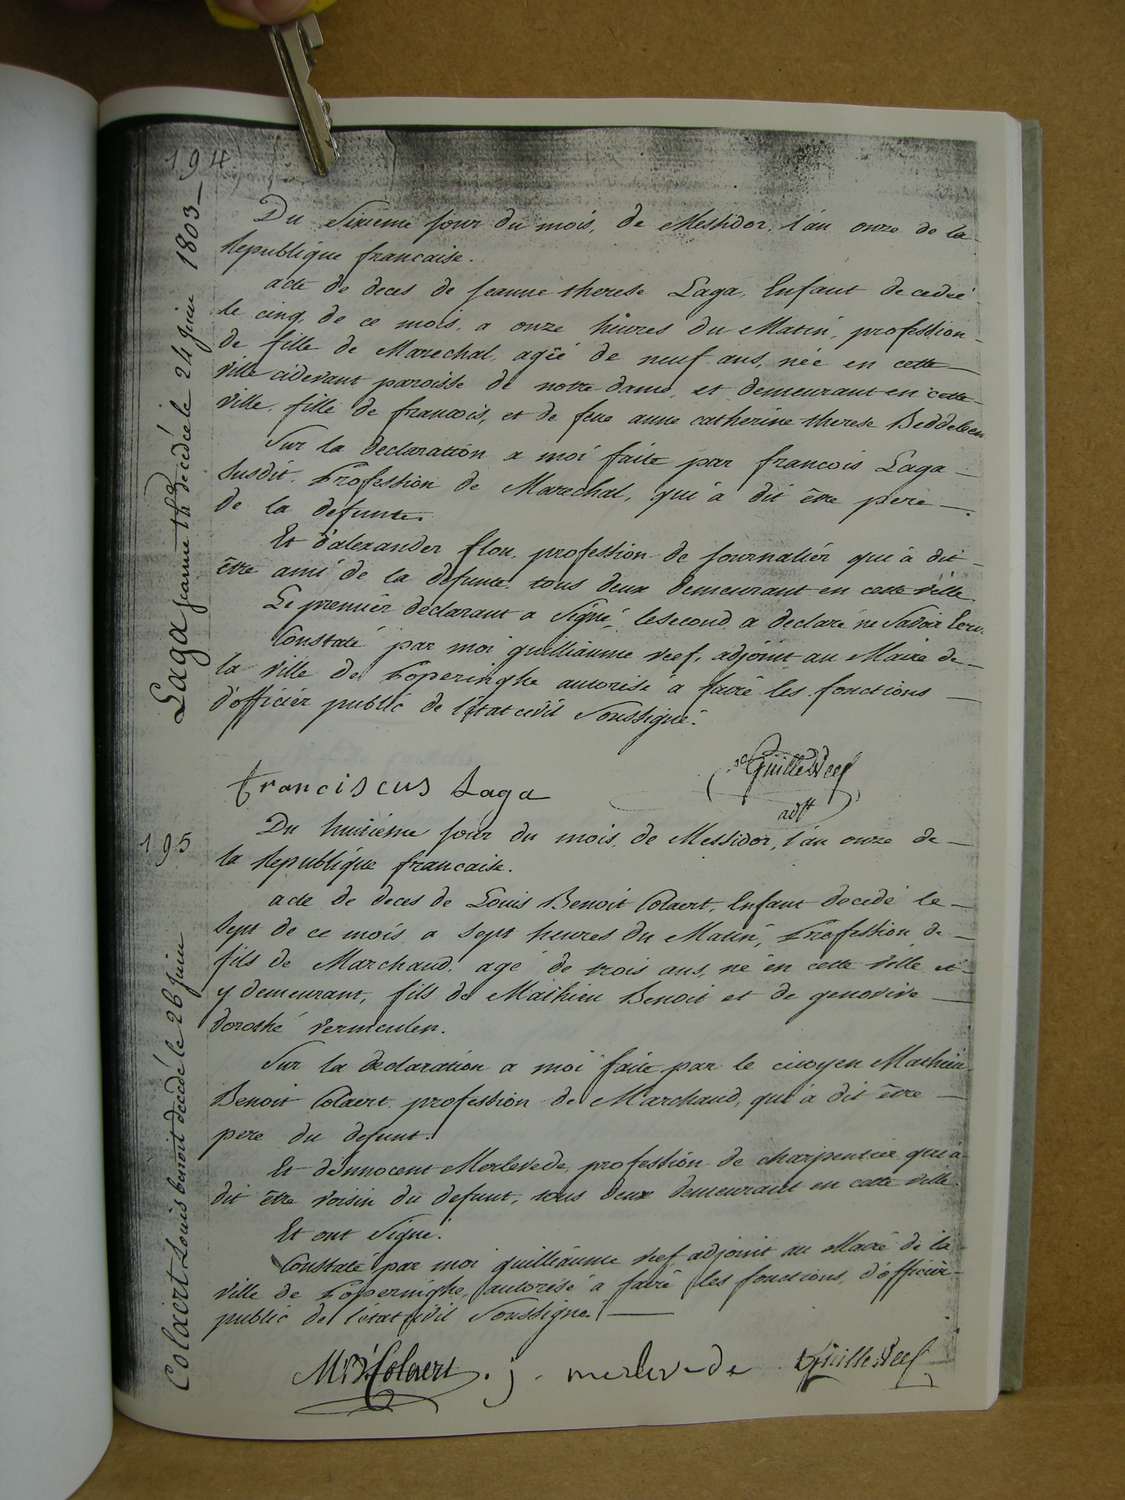 194
Laga jeanne th. decedée le 24 juin 1803
Du Sixieme jour du mois, de Messidor, l'an onze de la
Republique francaise.
acte de deces de jeanne therese Laga, Enfant decedeé
le cinq de ce mois, a onze hêures du Matin, profession
de fille de Marechal, ageé de neuf ans, neé en cette
ville cidevant paroisse de notre dame, et demeurant en cette
ville, fille de francois, et de feue anne catherine therese
Sur la declaration a moi faite par francois Laga
susdit. Profession de Marechal, qui a dit être pere
de la defunte.
Et d'alexander flou, profession de journaliér qui à dit
être ami de la defunte tous deux demeurant en cette ville
Le premiér declarant a Signé, lesecond a declaré ne Savoir Ecrir
Constaté par moi guilliaume veef, adjoint au Maire de
la ville de Poperinghe autorisé à faire les fonctions
d'officiér public de l'état civil Soussigné.
Franciscus Laga
Guille Veef
adjt
195
Colaert Louis benoit decedé le 26 juin
Du huitiéme jour du mois, de Messidor, l'an onze de
la Republique francaise.
acte de deces de Louis Benoit Colaert, Enfant decedé le
sept de ce mois, a sept heures du Matin, Profession de
fils de Marchand, agé de trois ans, né en cette ville et
y demeurant, fils de Mathieu Benoit et de genovive
dorothé vermeulen.
Sur la declaration a moi faite par le citoyen Mathieu
Benoit Colaert profession de Marchand, qui à dit être
pere du defunt.
Et d'innocent Merlevede profession de charpentier qui à
dit être voisin du defunt, tous deux demeurant en cette ville.
Et ont Signé.
Constaté par moi guilliaume veef adjoint au Maire de la
ville de Poperinghe autorisé à faire les fonctions d'officiér
public de l'état civil Soussigné.
M: B: Colaert
j. merlevede
Guille Veef